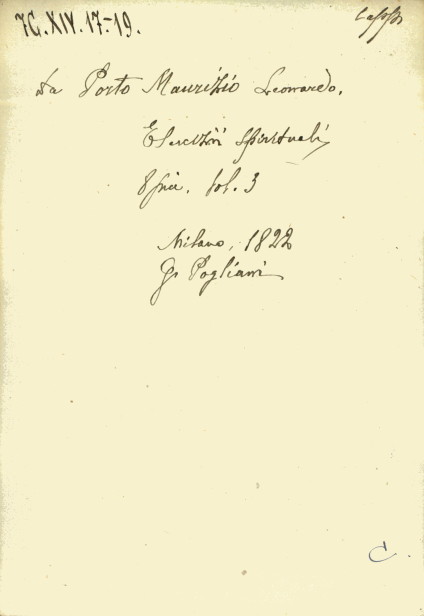 7C. XIV. 17.-19.
da Porto Maurizio Leonardo.
Esercizii Spirituali
vol. 3
Milano, 1822
G. Pogliani
C.